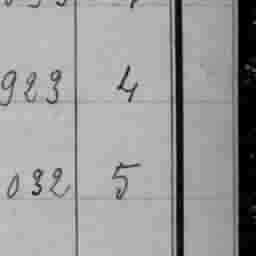 923 4
032 5